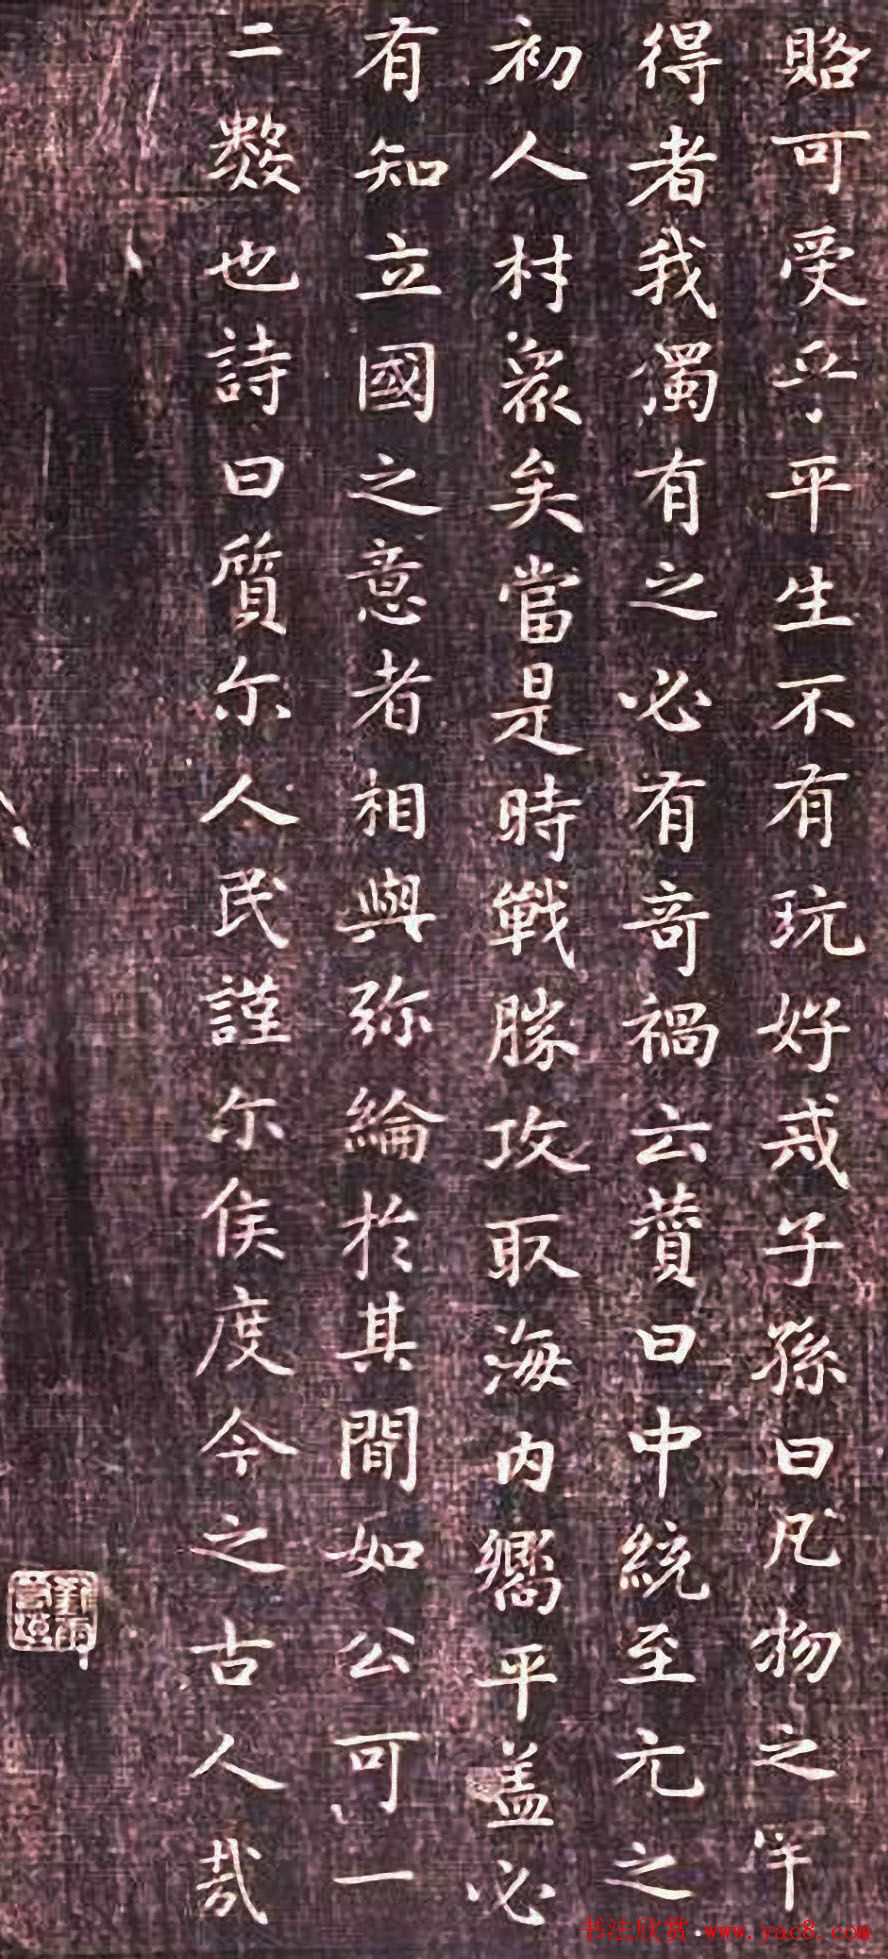 賂可受乎平生不有玩好戒子孫曰凡物之罕
得者我獨有之必有奇禍云贊曰中統至元之
初人材衆矣當是時戰勝攻取海内嚮平盖必
有知立國之意者相與弥綸於其間如公可一
二數也詩曰質尔人民謹尔侯度今之古人哉
书法欣赏·www.yac8.com